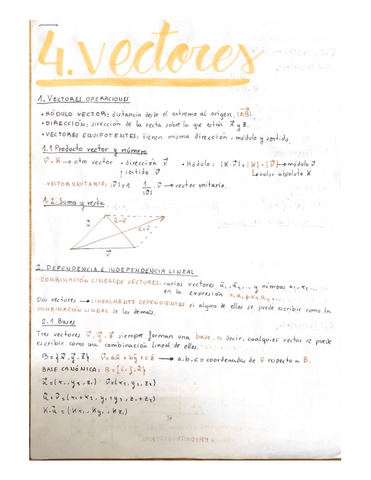 4. Vectores
1. VECTORES OPERACIONES
• MÓDULO VECTOR: distancia desde el extremo al origen, |AB|.
• DIRECCIÓN: dirección de la recta sobre la que están A y B.
• VECTORES EQUIPOTENTES: tienen misma dirección, módulo y sentido.
1.1 Producto vector y número
v⃗ · K → otro vector • dirección v⃗ • Módulo: |K·v⃗| = |K|·|v⃗| → módulo v⃗
y sentido v⃗ ↳ valor absoluto K
VECTOR UNITARIO: |v⃗|=1 1/|v⃗| · v⃗ → vector unitario.
1.2. Suma y resta
2. DEPENDENCIA E INDEPENDENCIA LINEAL
- COMBINACIÓN LINEAL DE VECTORES: varios vectores y números
en la expresión
Dos vectores → LINEALMENTE DEPENDIENTES si alguno de ellos se puede escribir como la
COMBINACIÓN LINEAL de los demás.
2.1 Bases
Tres vectores siempre forman una base, es decir, cualquier vector se puede
escribir como una combinación lineal de ellos.
→ a, b, c = coordenadas de v⃗ respecto a B.
BASE CANÓNICA:
u⃗ = (x₁, y₁, z₁) v⃗ = (x₂, y₂, z₂)
u⃗ + v⃗ = (x₁+x₂, y₁+y₂, z₁+z₂)
K·u⃗ = (Kx₁, Ky₁, Kz₁)